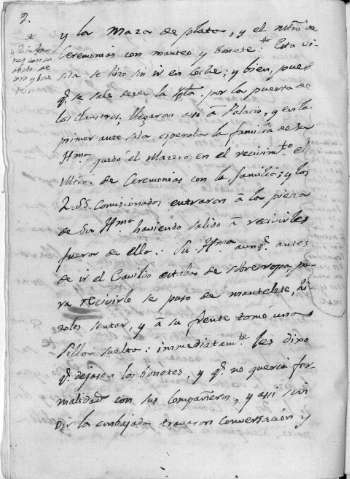 y la Maza de plata, y el mtrô. de
Ceremonias con manteo y bonete. Esta vi-
sita se hizo sin ir en coche; y bien, pues
q.e se sale desde la Igla. por la puerta de
los claustros, llegaron assi â Palacio, y en la
primer ante sala esperaba la familia de su
Ilma. quedó el Macero en el recivimto. el
Mtro. de Ceremonias con la familia: y los
2. SS. Comisionados entraron â la pieza
de Su Ilma. haviendo salido â recivirles
fuera de ella: Su Ilma. aunq.e antes
de ir el Cavildo estaba de sobreropa pa-
ra recivirlo se puso de mantelete, hi-
zolos sentar, y â su frente tomo una
silla suelta: inmediatamte. les dixo
q.e dejasen los bonetes, y q.e no queria for-
malidad con sus compañeros, y assi sin
la embajada travaron conversacion, y